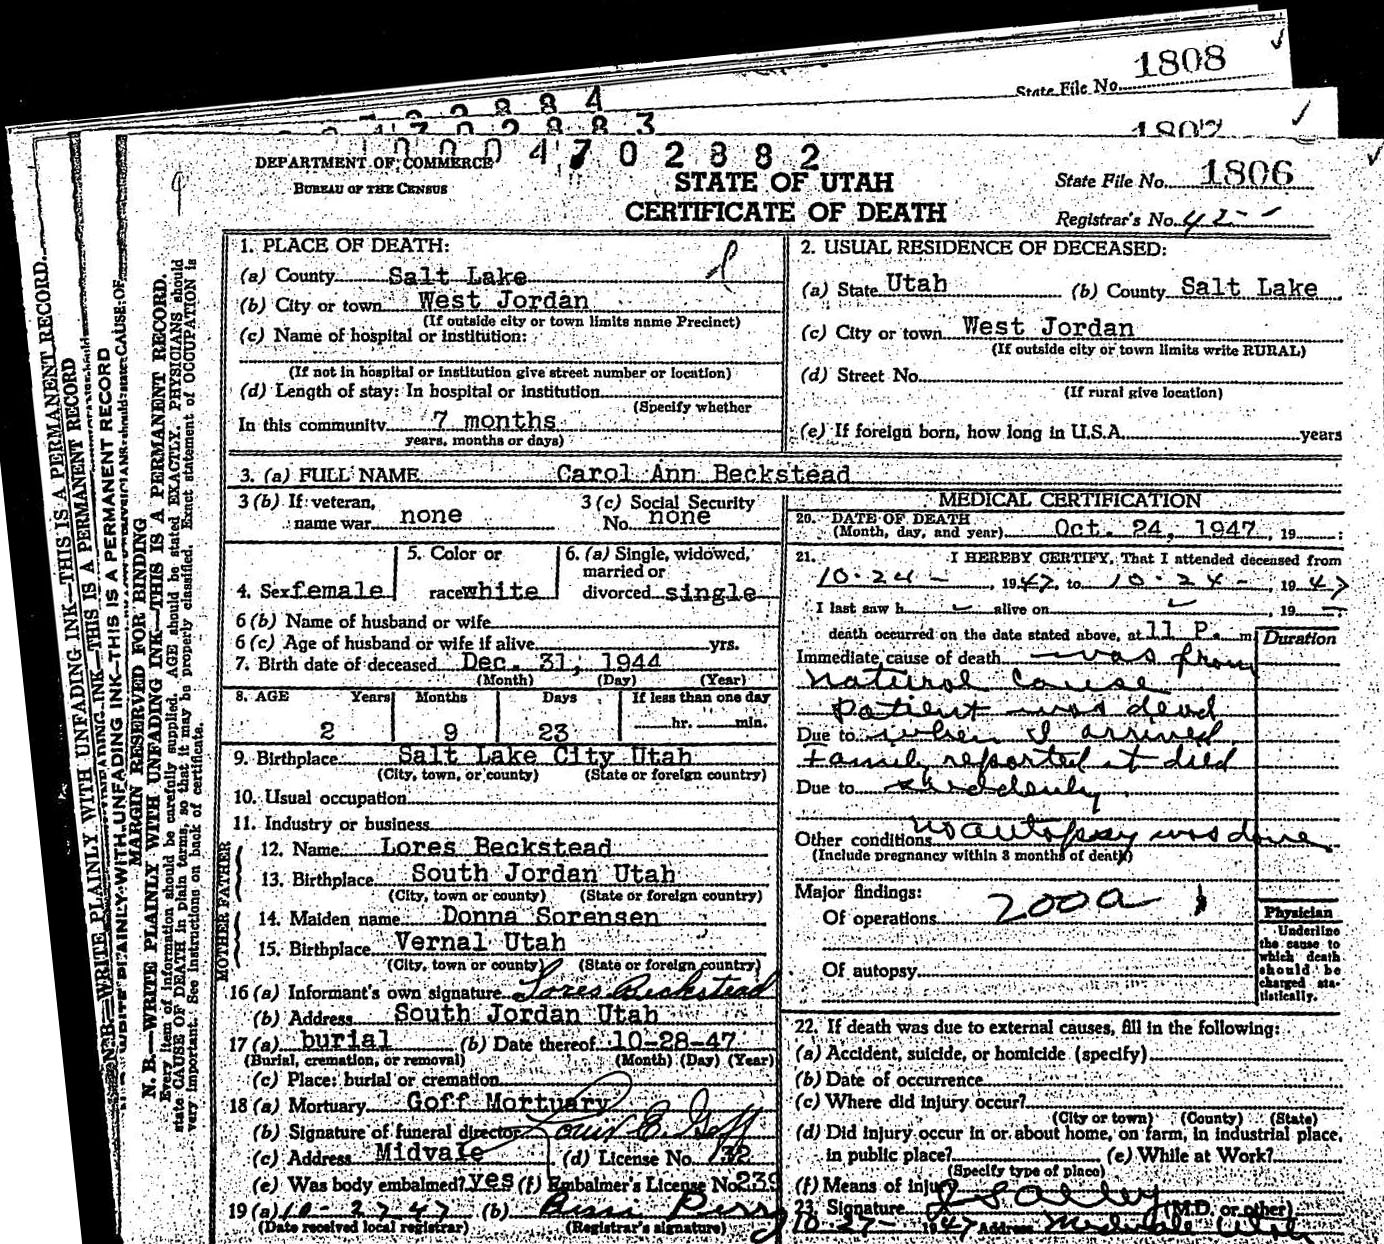 1808
State File No.
4
2883
1807
04702882
DEPARTMENT OF COMMERCE
BUREAU OF THE CENSUS
STATE OF UTAH
CERTIFICATE OF DEATH
State File No. 1806
Registrar's No. 42
N. B.—WRITE PLAINLY WITH UNFADING INK—THIS IS A PERMANENT RECORD.
THIS IS A PERMANENT RECORD
WITH UNFADING INK—THIS IS A PERMANENT RECORD
MARGIN RESERVED FOR BINDING
N. B.—WRITE PLAINLY WITH UNFADING INK—THIS IS A PERMANENT RECORD.
Every item of information should be carefully supplied. AGE should be stated EXACTLY. PHYSICIANS should
state CAUSE OF DEATH in plain terms, so that it may be properly classified. Exact statement of OCCUPATION is
very important. See instructions on back of certificate.
1. PLACE OF DEATH:
(a) County Salt Lake
(b) City or town West Jordan
(If outside city or town limits name Precinct)
(c) Name of hospital or institution:
(If not in hospital or institution give street number or location)
(d) Length of stay: In hospital or institution
(Specify whether
In this community 7 months
years, months or days)
2. USUAL RESIDENCE OF DECEASED:
(a) State Utah (b) County Salt Lake
(c) City or town West Jordan
(If outside city or town limits write RURAL)
(d) Street No.
(If rural give location)
(e) If foreign born, how long in U.S.A. years
3. (a) FULL NAME Carol Ann Beckstead
3 (b) If veteran, name war none
3 (c) Social Security No. none
4. Sex female
5. Color or race white
6. (a) Single, widowed, married or divorced single
6 (b) Name of husband or wife
6 (c) Age of husband or wife if alive yrs.
7. Birth date of deceased Dec. 31, 1944
(Month) (Day) (Year)
8. AGE Years Months Days If less than one day
2 9 23 hr. min.
9. Birthplace Salt Lake City Utah
(City, town, or county) (State or foreign country)
10. Usual occupation
11. Industry or business
FATHER
12. Name Lores Beckstead
13. Birthplace South Jordan Utah
(City, town or county) (State or foreign country)
MOTHER
14. Maiden name Donna Sorensen
15. Birthplace Vernal Utah
(City, town or county) (State or foreign country)
16 (a) Informant's own signature Lores Beckstead
(b) Address South Jordan Utah
17 (a) burial (b) Date thereof 10-28-47
(Burial, cremation, or removal) (Month) (Day) (Year)
(c) Place: burial or cremation
18 (a) Mortuary Goff Mortuary
(b) Signature of funeral director Louis E. Goff
(c) Address Midvale (d) License No. 132
(e) Was body embalmed? yes (f) Embalmer's License No. 239
19 (a) 10-27-47 (b)
(Date received local registrar) (Registrar's signature)
MEDICAL CERTIFICATION
20. DATE OF DEATH
(Month, day, and year) Oct. 24, 1947, 19
21. I HEREBY CERTIFY, That I attended deceased from
10-24-, 1947, to 10-24-, 1947
I last saw h alive on , 19
death occurred on the date stated above, at 11 P. m
Duration
Immediate cause of death was from
natural cause
patient was dead
Due to when I arrived
Family reported it died
Due to suddenly.
Other conditions no autopsy was done
(Include pregnancy within 3 months of death)
Major findings:
Of operations 200a
Of autopsy
Physician
Underline
the cause to
which death
should be
charged sta-
tistically.
22. If death was due to external causes, fill in the following:
(a) Accident, suicide, or homicide (specify)
(b) Date of occurrence
(c) Where did injury occur?
(City or town) (County) (State)
(d) Did injury occur in or about home, on farm, in industrial place,
in public place? (e) While at Work?
(Specify type of place)
(f) Means of injury
23. Signature (M.D. or other)
10-27-1947 Address Midvale Utah